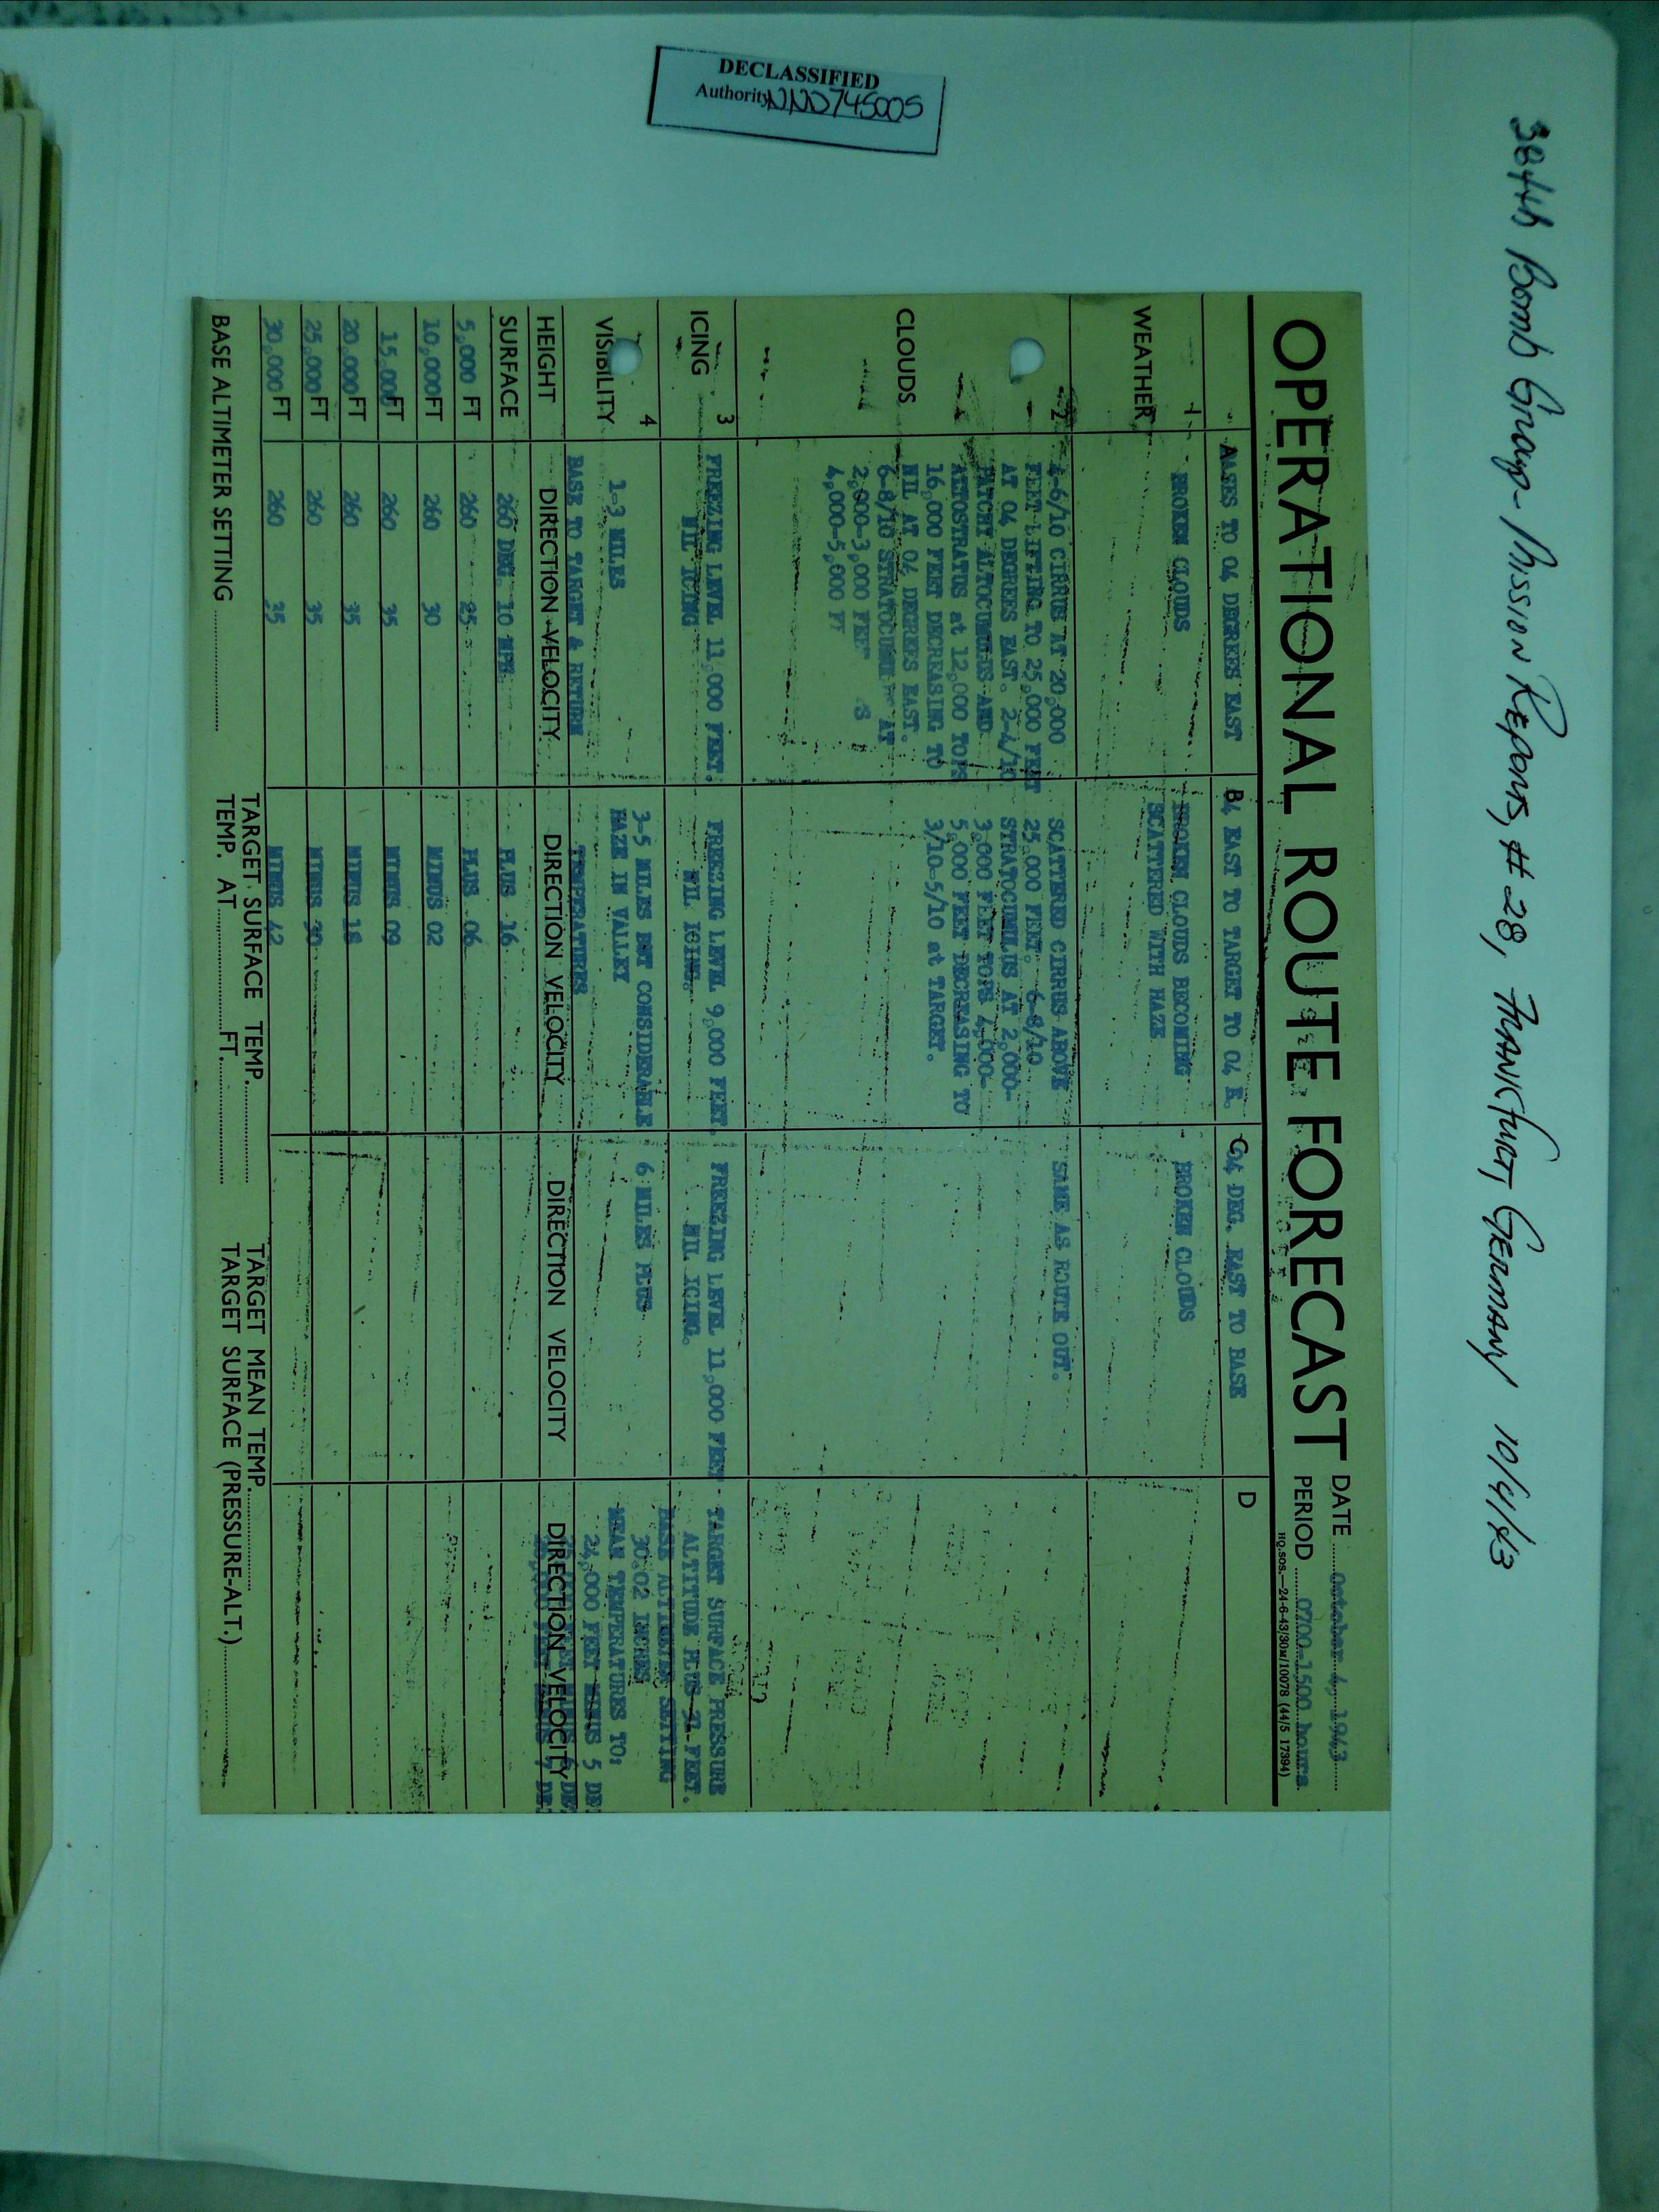 DECLASSIFIED
Authority NND745005
384th Bomb Group - Mission Reports, #28, Frankfurt, Germany 10/4/43
OPERATIONAL ROUTE FORECAST
DATE October 4, 1943
PERIOD 0700-1500 hours.
HQ.SOS.—24-6-43/30M/10078 (44/5 17394)
A BASES TO 04 DEGREES EAST
B 4 EAST TO TARGET TO 04 E.
C 04 DEG. EAST TO BASE
D
1
WEATHER
BROKEN CLOUDS
BROKEN CLOUDS BECOMING
SCATTERED WITH HAZE
BROKEN CLOUDS
2
CLOUDS
4-6/10 CIRRUS AT 20,000
FEET LIFTING TO 25,000 FEET
AT 04 DEGREES EAST. 2-4/10
PATCHY ALTOCUMULUS AND
ALTOSTRATUS at 12,000 TOPS
16,000 FEET DECREASING TO
NIL AT 04 DEGREES EAST.
6-8/10 STRATOCUMU AT
2,000-3,000 FEET S
4,000-5,000 FT
SCATTERED CIRRUS ABOVE
25,000 FEET. 6-8/10
STRATOCUMULUS AT 2,000-
3,000 FEET TOPS 4,000-
5,000 FEET DECREASING TO
3/10-5/10 at TARGET.
SAME AS ROUTE OUT.
3
ICING
FREEZING LEVEL 11,000 FEET.
NIL ICING
FREEZING LEVEL 9,000 FEET.
NIL ICING.
FREEZING LEVEL 11,000 FEET
NIL ICING.
TARGET SURFACE PRESSURE
ALTITUDE PLUS 91 FEET.
BASE ALTIMETER SETTING
30.02 INCHES
MEAN TEMPERATURES TO:
24,000 FEET MINUS 5 DE
4
VISIBILITY
1-3 MILES
3-5 MILES BUT CONSIDERABLE
HAZE IN VALLEY
6 MILES PLUS
BASE TO TARGET & RETURN
TEMPERATURES
HEIGHT DIRECTION VELOCITY DIRECTION VELOCITY DIRECTION VELOCITY DIRECTION VELOCITY
SURFACE 260 DEG. 10 MPH. PLUS 16
5,000 FT 260 25 PLUS 06
10,000 FT 260 30 MINUS 02
15,000 FT 260 35 MINUS 09
20,000 FT 260 35 MINUS 18
25,000 FT 260 35 MINUS 30
30,000 FT 260 25 MINUS 42
BASE ALTIMETER SETTING
TARGET SURFACE TEMP.
TEMP. AT FT.
TARGET MEAN TEMP.
TARGET SURFACE (PRESSURE-ALT.)